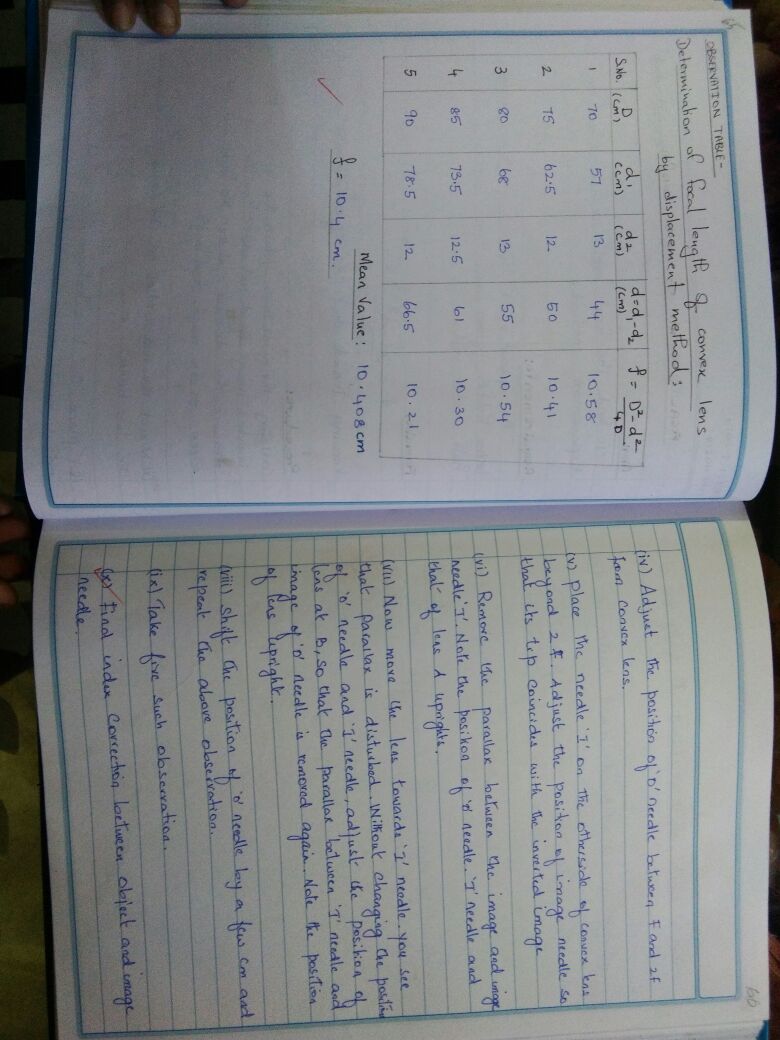 65
OBSERVATION TABLE-
Determination of focal length of convex lens
by displacement method:
S.No. D (cm) d1 (cm) d2 (cm) d=d1-d2 (cm) f = D²-d²/4D
1 70 57 13 44 10.58
2 75 62.5 12 50 10.41
3 80 68 13 55 10.54
4 85 73.5 12.5 61 10.30
5 90 78.5 12 66.5 10.21
Mean Value: 10.408 cm
f = 10.4 cm.
66
(iv) Adjust the position of 'O' needle between F and 2F
from convex lens.
(v) Place the needle 'I' on the otherside of convex lens
beyond 2F. Adjust the position of image needle so
that its tip coincides with the inverted image
(vi) Remove the parallax between the image and image
needle 'I'. Note the position of 'O' needle 'I' needle and
that of lens A uprights.
(vii) Now move the lens towards 'I' needle you see
that parallax is disturbed. Without changing the position
of 'O' needle and 'I' needle, adjust the position of
lens at B, so that the parallax between 'I' needle and
image of 'O' needle is removed again. Note the position
of lens upright.
(viii) Shift the position of 'O' needle by a few cm and
repeat the above observation.
(ix) Take five such observation.
(x) Find index correction between object and image
needle.